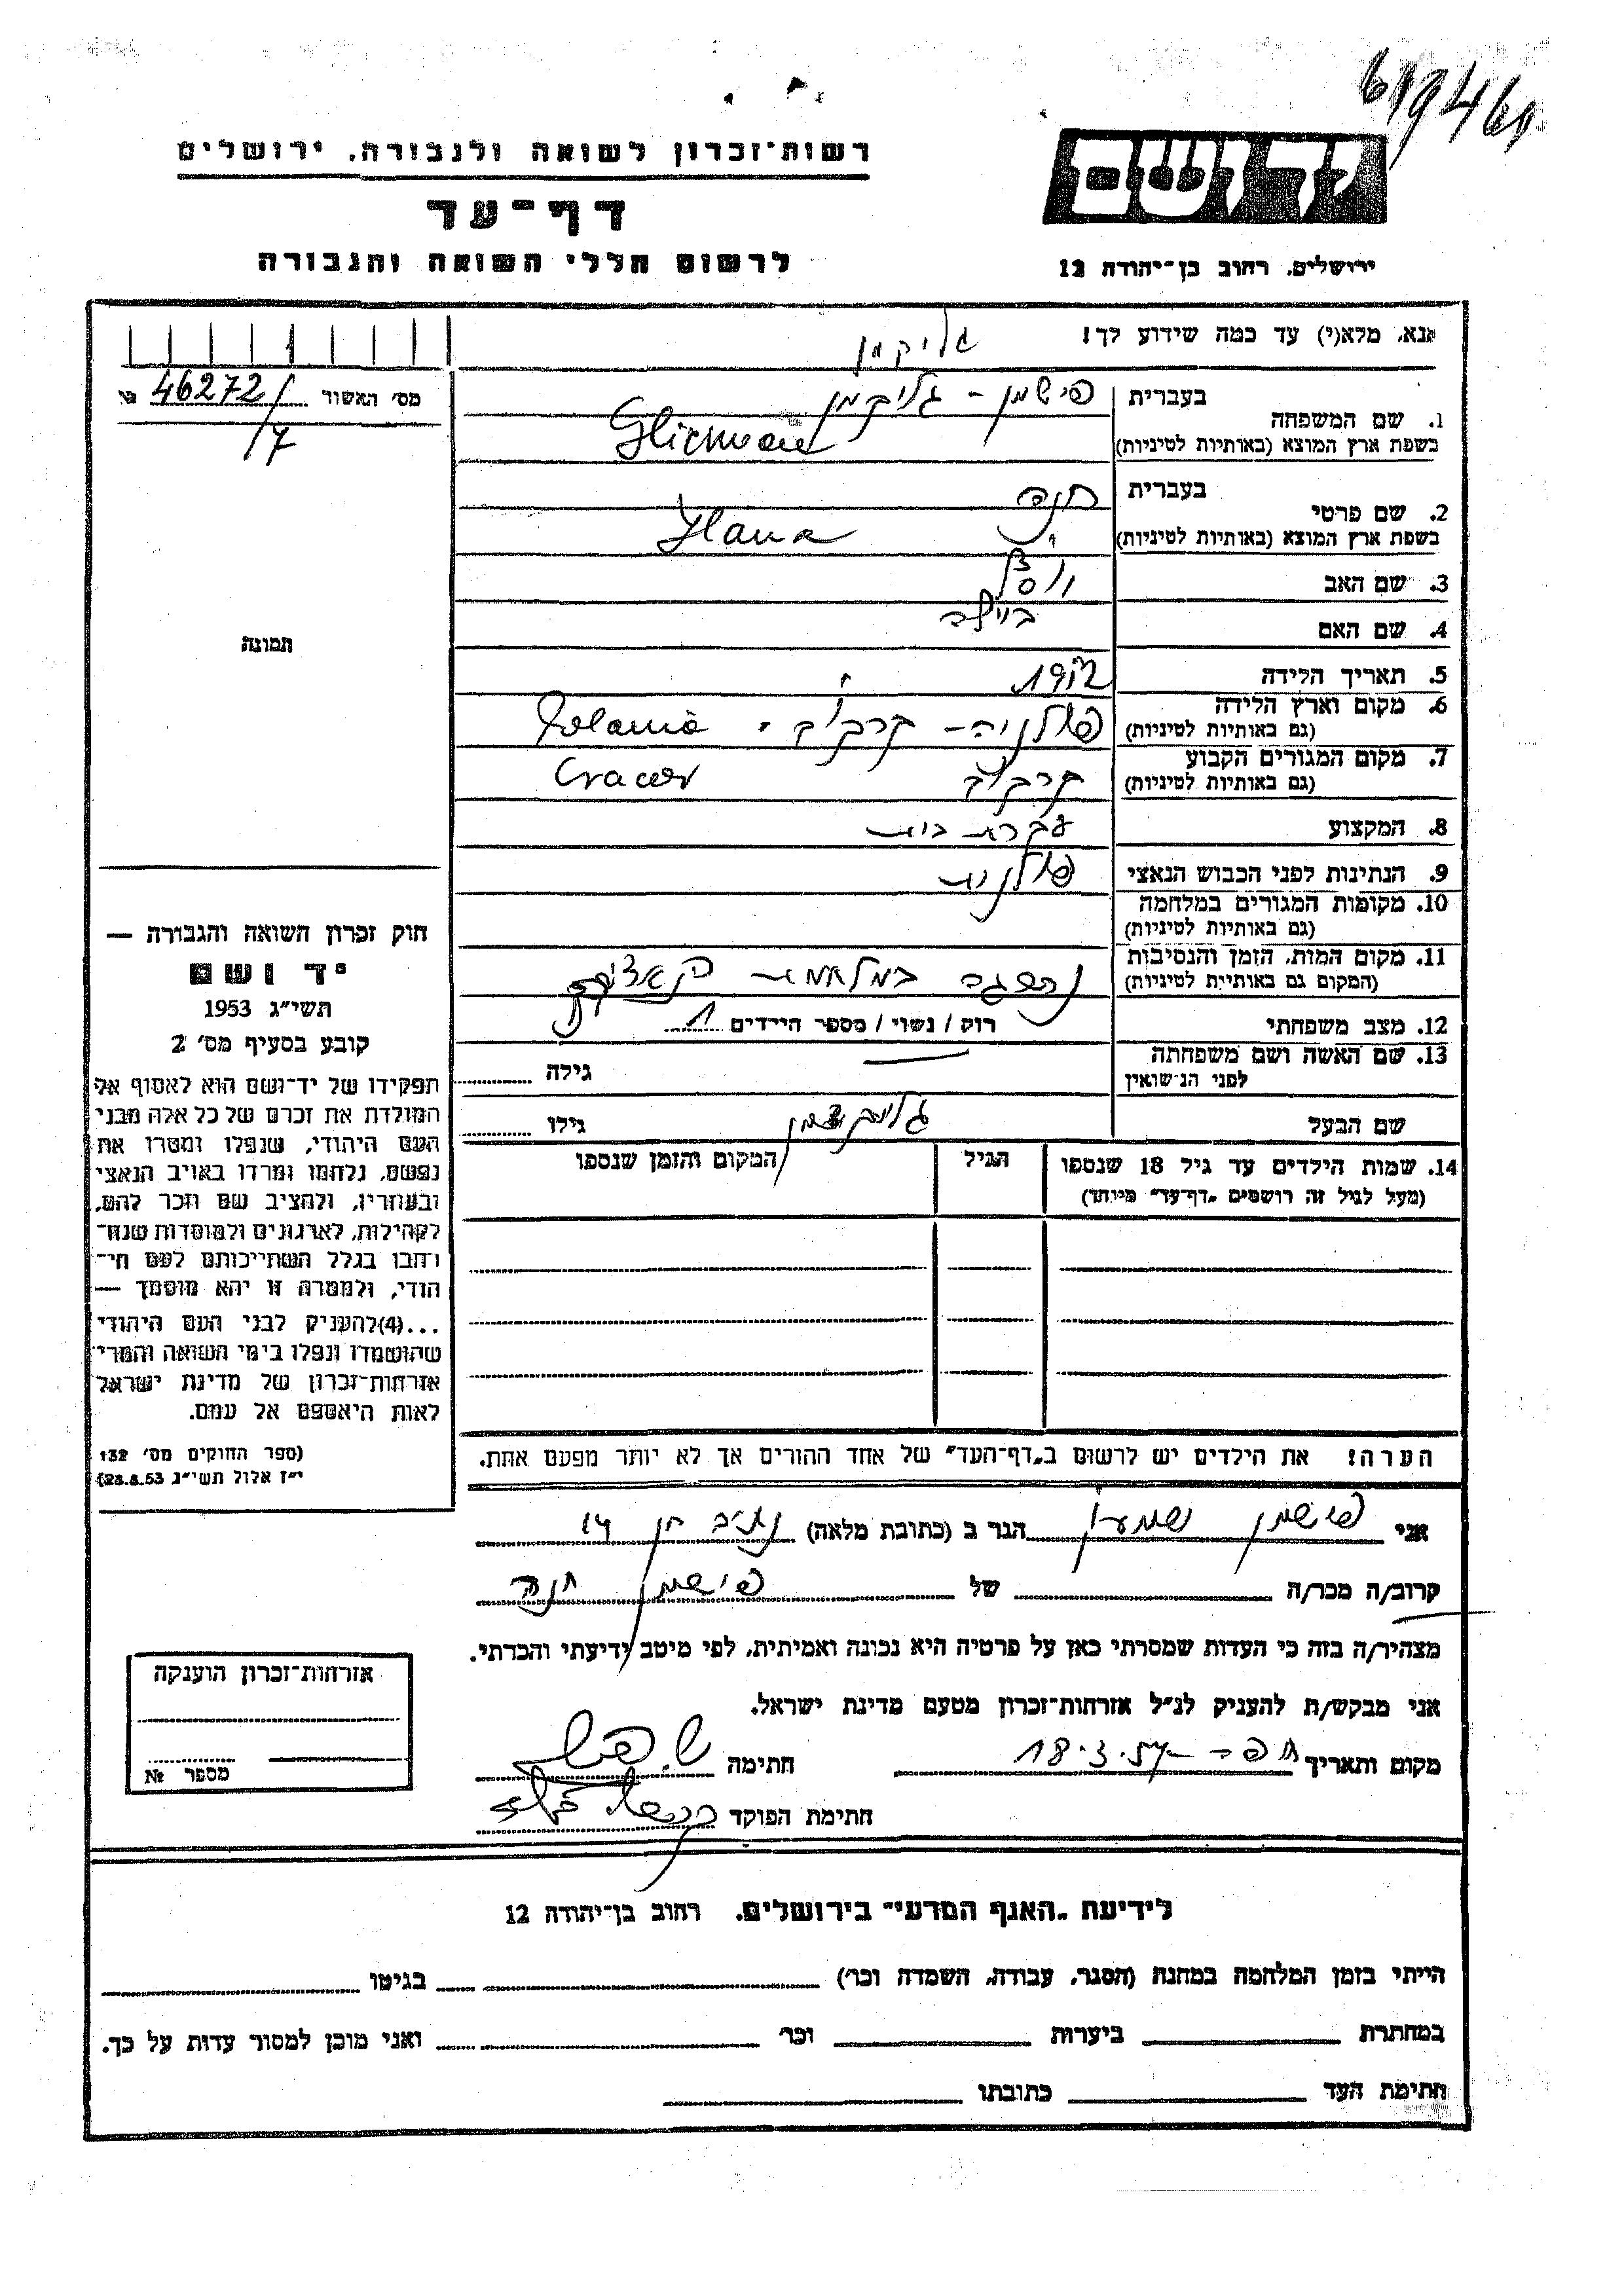 619461
רשות־זכרון לשואה ולגבורה, ירושלים
דף־עד
לרשום חללי השואה והגבורה
יד ושם
ירושלים, רחוב בן־יהודה 12
אנא, מלא(י) עד כמה שידוע לך!
גליקמן
מס׳ האשור 46272/ №
7
1. שם המשפחה
בעברית פישמן - גליקמן
בשפת ארץ המוצא (באותיות לטיניות) Glicman
2. שם פרטי
בעברית חנה
בשפת ארץ המוצא (באותיות לטיניות) Hana
3. שם האב
4. שם האם ביילה
5. תאריך הלידה 1912
6. מקום וארץ הלידה
(גם באותיות לטיניות) פולניה - קרקוב - Polania
7. מקום המגורים הקבוע
(גם באותיות לטיניות) קרקוב Cracow
8. המקצוע עקרת בית
9. הנתינות לפני הכבוש הנאצי פולנית
10. מקומות המגורים במלחמה
(גם באותיות לטיניות)
11. מקום המות, הזמן והנסיבות
(המקום גם באותיות לטיניות) נספתה במלחמת הנאצים
12. מצב משפחתי רווק / נשוי / מספר הילדים 1
13. שם האשה ושם משפחתה
לפני הנישואין גילה
שם הבעל גליקמן גילו
14. שמות הילדים עד גיל 18 שנספו הגיל המקום והזמן שנספו
(מעל לגיל זה רושמים „דף־עד״ מיוחד)
הערה! את הילדים יש לרשום ב„דף־העד״ של אחד ההורים אך לא יותר מפעם אחת.
תמונה
חוק זכרון השואה והגבורה —
יד ושם
תשי״ג 1953
קובע בסעיף מס׳ 2
תפקידו של יד־ושם הוא לאסוף אל
המולדת את זכרם של כל אלה מבני
העם היהודי, שנפלו ומסרו את
נפשם, נלחמו ומרדו באויב הנאצי
ובעוזריו, ולהציב שם וזכר להם,
לקהילות, לארגונים ולמוסדות שנח־
רבו בגלל השתייכותם לעם הי־
הודי, ולמטרה זו יהא מוסמך —
...(4)להעניק לבני העם היהודי
שהושמדו ונפלו בימי השואה והמרי
אזרחות־זכרון של מדינת ישראל
לאות היאספם אל עמם.
(ספר החוקים מס׳ 132
י״ז אלול תשי״ג 28.8.53)
אני פישמן שמעון הגר ב (כתובת מלאה) נתיב חן 14
קרוב/ה מכר/ה של פישמן חנה
מצהיר/ה בזה כי העדות שמסרתי כאן על פרטיה היא נכונה ואמיתית, לפי מיטב ידיעתי והכרתי.
אני מבקש/ת להעניק לנ״ל אזרחות־זכרון מטעם מדינת ישראל.
מקום ותאריך חיפה 18.3.57 חתימה
חתימת הפוקד
אזרחות־זכרון הוענקה
מספר №
לידיעת „האגף המדעי״ בירושלים, רחוב בן־יהודה 12
הייתי בזמן המלחמה במחנה (הסגר, עבודה, השמדה וכו׳) בגיטו
במחתרת ביערות וכו׳ ואני מוכן למסור עדות על כך.
חתימת העד כתובתו